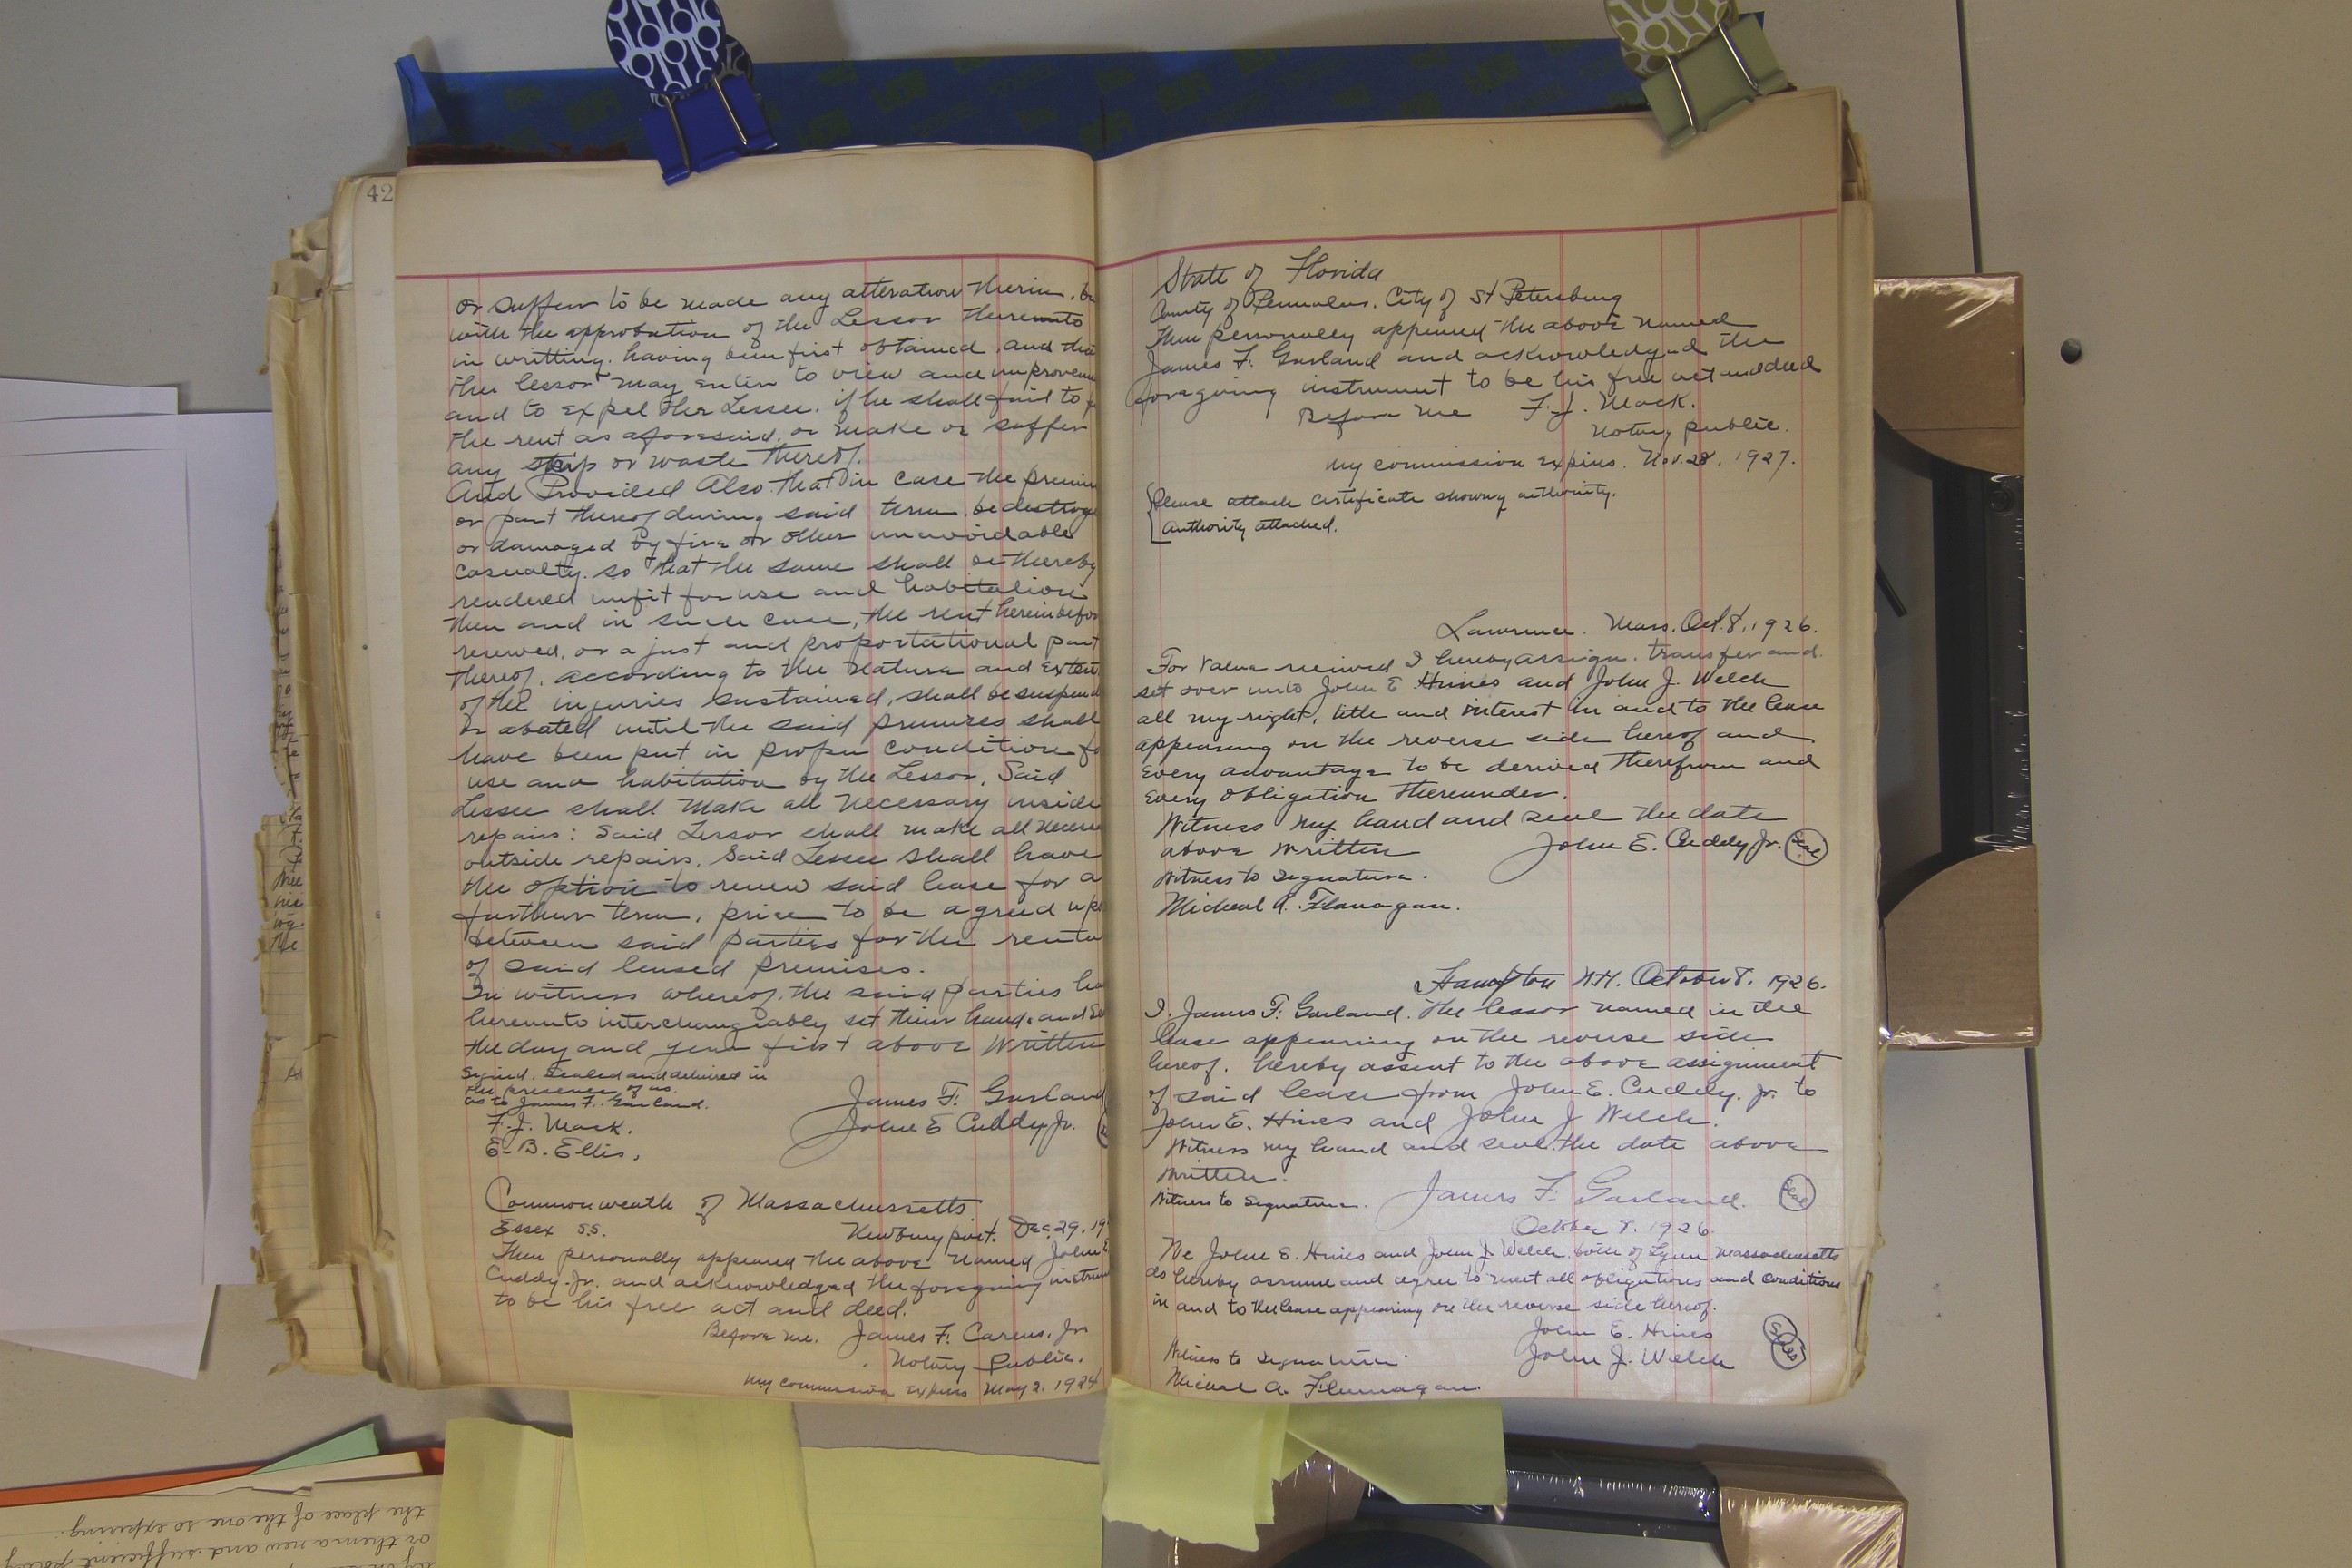 42
or suffer to be made any alteration therin.
with the approbation of the Lessor thereunto
in writting. having been first obtained. and that
the lessor may enter to view and improvem
and to expel the Lessee. if he shall fail to
the rent as aforesaid. or make or suffer
any strip or waste thereof.
And Provided Also. that in case the premi
or part thereof during said term. be destroye
or damaged by fire or other unavoidable
casualty. so that the same shall be thereby
rendered unfit for use and habitation
then and in such case, the rent hereinbefor
reserved, or a just and proportational part
thereof. according to the nature and extent
of the injuries sustained, shall be suspend
or abated until the said premises shall
have been put in proper condition fo
use and habitation by the Lessor. Said
Lessee shall make all necessary inside
repairs: Said Lessor shall make all necess
outside repairs. Said Lessee shall have
the option to renew said lease for a
further term, price to be agreed upo
between said parties for the renta
of said leased premises.
In witness whereof. the said parties ha
hereunto interchangeably set their hands and Se
the day and year first above written
Signed. Sealed and delivered in
the presence of us.
as to James F. Garland.
James F. Garland
F. J. Mack.
John E Cuddy. Jr.
E. B. Ellis.
Commonweath of Massachussetts
Essex S.S. Newburyport. Dec. 29. 19
Then personally appeared the above named John E
Cuddy. Jr. and acknowledged the foregoing instrum
to be his free act and deed.
Before me. James F. Carens. Jr
Notary Public.
My commission expires May 2. 1924
State of Florida
County of Pennulas. City of St Petersburg
Then personally appeared the above named
James F. Garland and acknowledged the
foregoing instrument to be his free act and deed
Before me F. J. Mack.
Notary public.
My commission expires. Nov. 28. 1927.
Please attach certificate showing authority.
Authority attached.
Lawrence. Mass. Oct. 8, 1926.
For value received I hereby assign. transfer and
set over unto John E Hines and John J. Welch
all my right, title and interest in and to the lease
appearing on the reverse side hereof and
every advantage to be derived therefrom and
every obligation thereunder.
Witness my hand and seal the date
above written John E. Cuddy, Jr. Seal
Witness to Signature.
Micheal A. Flanagan.
Hampton N.H. October 8. 1926.
I. James F. Garland. the lessor named in the
lease appearing on the reverse side
hereof. hereby assent to the above assignment
of said lease from John E. Cuddy. Jr. to
John E. Hines and John J Welch.
Witness my hand and seal the date above
written.
Witness to Signature. James F. Garland. Seal
October 8. 1926
We John E. Hines and John J. Welch. both of Lynn Massachusetts
do hereby assume and agree to meet all obligations and conditions
in and to the lease appearing on the reverse side hereof.
John E. Hines
Witness to Signature John J. Welch
Micheal A. Flannagan.
the place of the one so expiring.
or them a new and sufficient policy